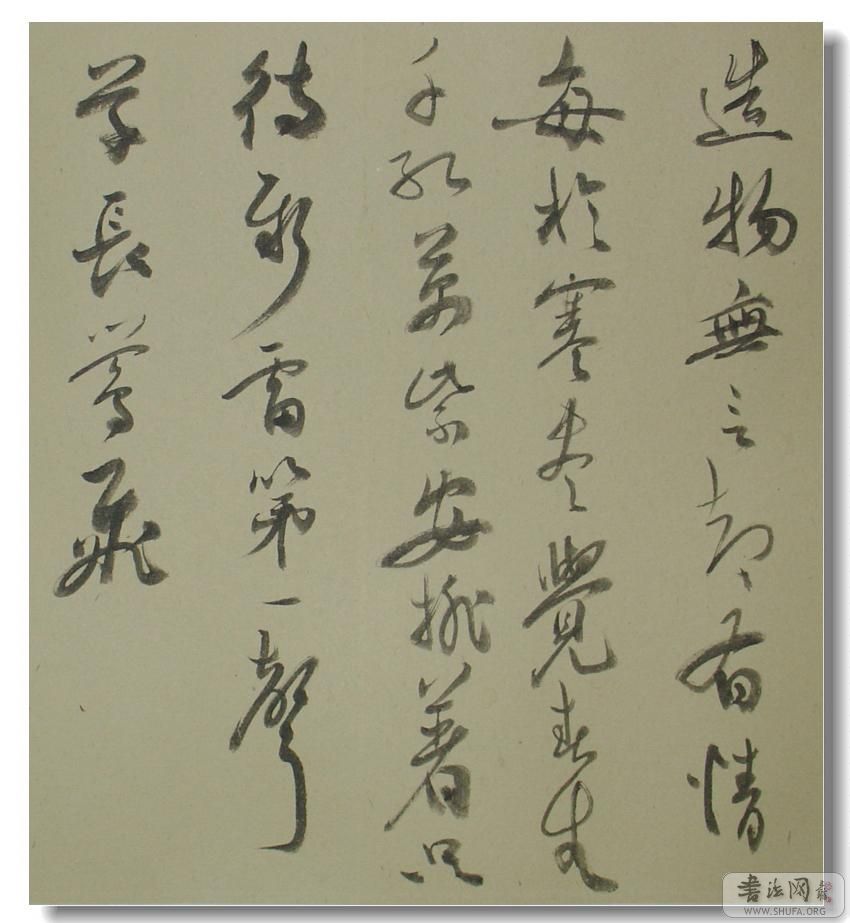 造物無言却有情
每於寒盡覺春生
千紅萬紫安排著只
待新雷第一聲
草長鶯飛
書法网
WWW.SHUFA.ORG